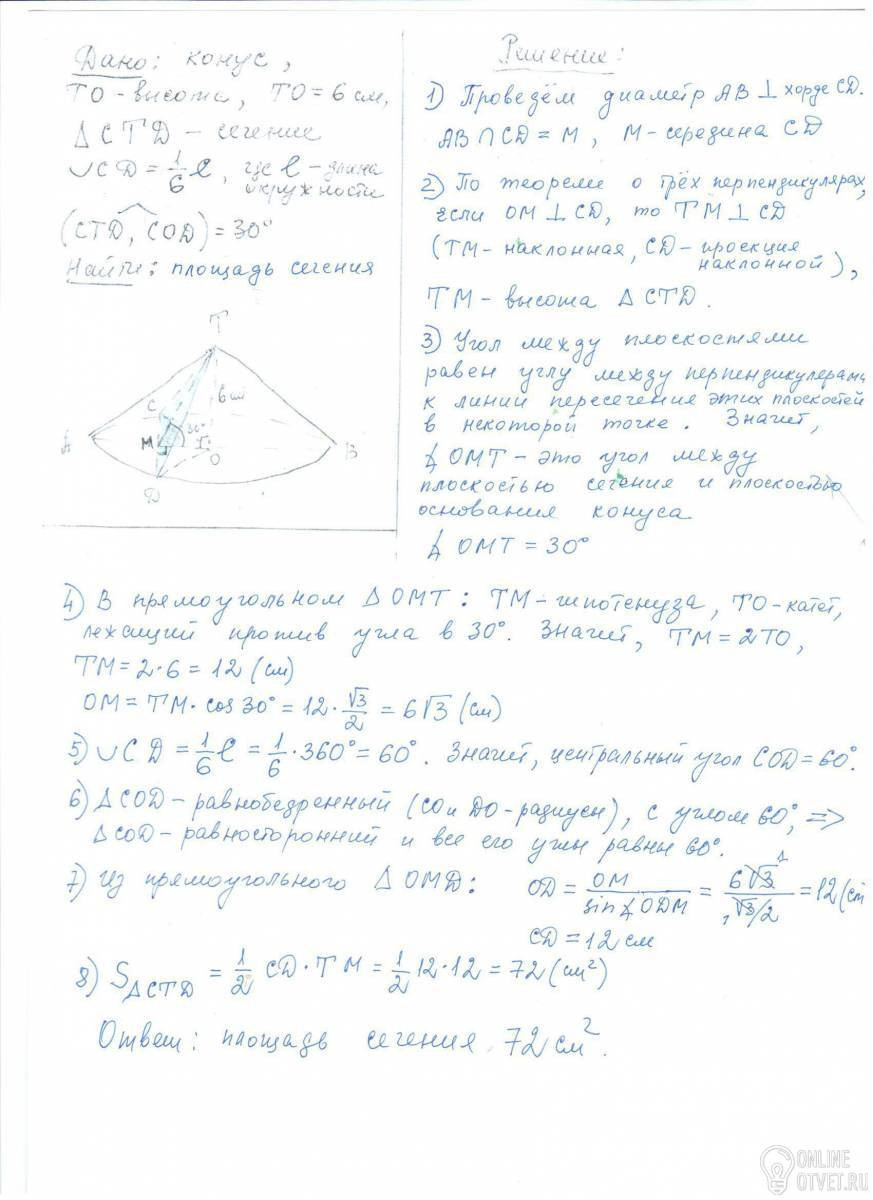 Дано: конус,
ТО-высота, ТО = 6 см,
Δ CTD - сечение
∪CD = 1/6 ℓ, где ℓ - длина
окружности
(CTD, COD) = 30°
Найти: площадь сечения
T
6 см
C
30°
A
M
O
B
D
Решение:
1) Проведём диаметр AB ⊥ хорде CD.
AB ∩ CD = M, M - середина CD
2) По теореме о трёх перпендикулярах,
если OM ⊥ CD, то TM ⊥ CD
(TM - наклонная, CD - проекция
наклонной),
TM - высота Δ CTD.
3) Угол между плоскостями
равен углу между перпендикулерами
к линии пересечения этих плоскостей
в некоторой точке. Значит,
∡ OMT - это угол между
плоскостью сечения и плоскостью
основания конуса
∡ OMT = 30°
4) В прямоугольном Δ OMT: TM - гипотенуза, TO - катет,
лежащий против угла в 30°. Значит, TM = 2TO,
TM = 2·6 = 12 (см)
OM = TM · cos 30° = 12 · √3/2 = 6√3 (см)
5) ∪CD = 1/6 ℓ = 1/6 · 360° = 60°. Значит, центральный угол COD = 60°.
6) Δ COD - равнобедренный (CO и DO - радиусы), с углом 60°, =>
Δ COD - равносторонний и все его углы равны 60°.
7) Из прямоугольного Δ OMD: OD = OM / sin∡ODM = 6√3 / √3/2 = 12 (см
CD = 12 см
8) S ΔCTD = 1/2 CD · TM = 1/2 12 · 12 = 72 (см²)
Ответ: площадь сечения 72 см².
ONLINE
OTVET.RU